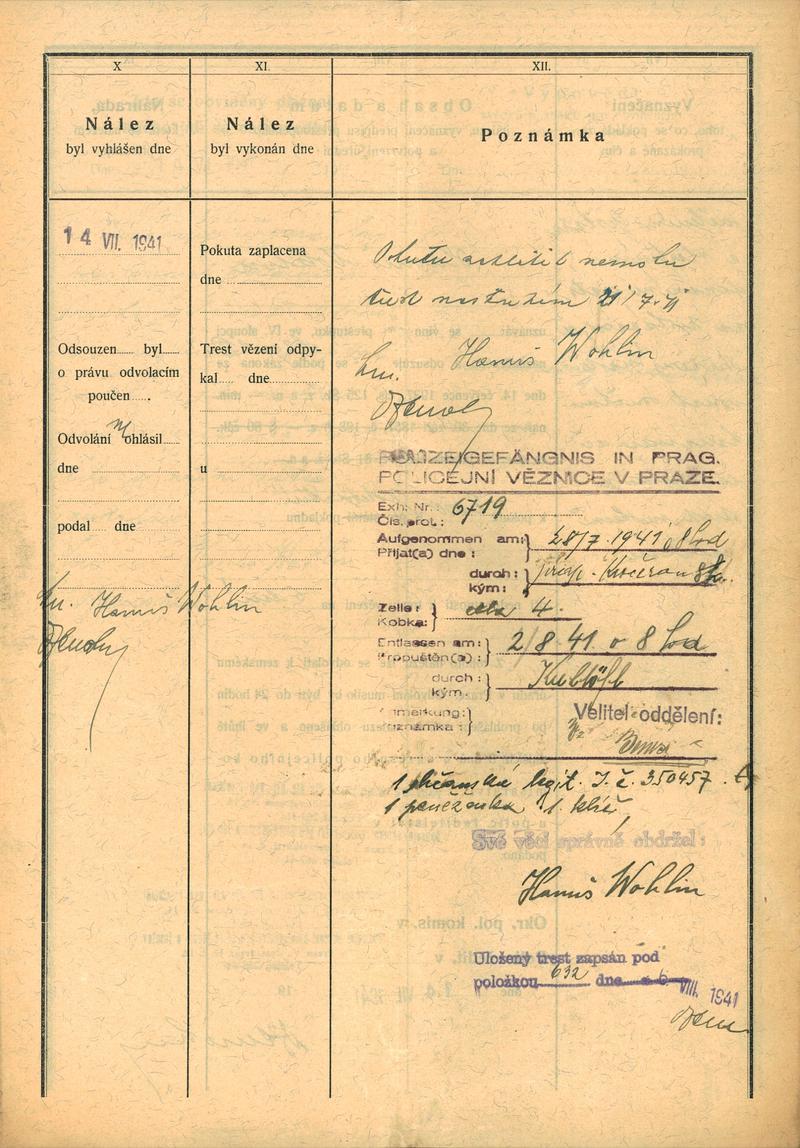 X
Nález
byl vyhlášen dne
14 VII. 1941
Odsouzen byl
o právu odvolacím
poučen
Odvolání ne ohlásil
dne
podal dne
Hanuš Wohlin
XI.
Nález
byl vykonán dne
Pokuta zaplacena
dne
Trest vězení odpy-
kal dne
u
XII.
Poznámka
nemohu
trest nastoupím 21/7.41
Hanuš Wohlin
POLIZEIGEFÄNGNIS IN PRAG.
POLICEJNÍ VĚZNICE V PRAZE.
Exh. Nr.: 6719
Čís. prot.:
Aufgenommen am: 28/7.1941 8 hod
Přijat(a) dne:
durch:
kým:
Zelle: cela 4.
Kobka:
Entlassen am: 2/8.41. v 8 hod
Propuštěn(a):
durch:
kým.
Anmerkung: Velitel oddělení:
Poznámka:
1 občanská legit. I. č. 350457.
1 peněženka 1 klíč
Své věci správně obdržel:
Hanuš Wohlin
Uložený trest zapsán pod
položkou 632 dne 6 VIII. 1941